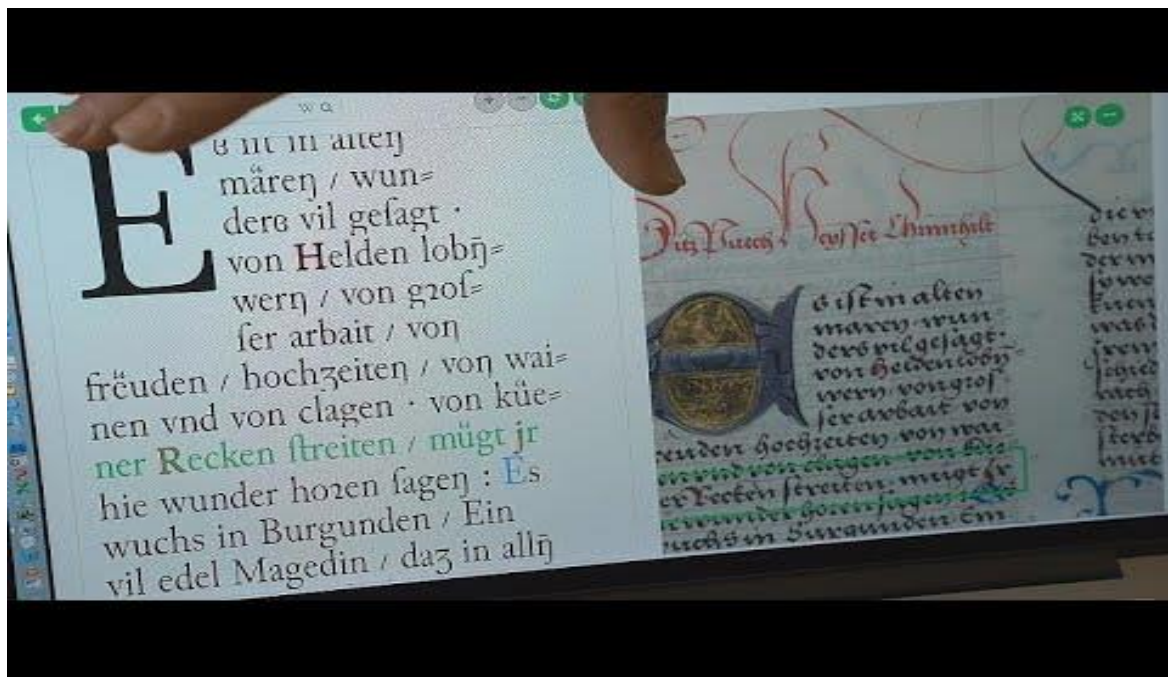 w a
Es iſt in alteŋ
märeŋ / wun⸗
ders vil geſagt ·
von Helden lobŋ̄⸗
werŋ / von gꝛoſ⸗
ſer arbait / voŋ
frëuden / hochʒeiteŋ / voŋ wai⸗
nen vnd von clagen · von küe⸗
ner Recken ſtreiten / mügt jr
hie wunder hoꝛen ſageŋ : Es
wuchs in Burgunden / Ein
vil edel Magedin / daʒ in allŋ̄
Ditz Puech Heysſet Chrimhilt
Es iſt in alten
maren wun
ders vil geſagt ·
von Helden lobn⸗
wern, von groſ
ſer arbait von
reuden hochzeiten von wai
nen vnd von clagen · von kue
ner Recken ſtreiten, mugt Jr
wunder horen ſagen
wuchs in Burgunden Ein